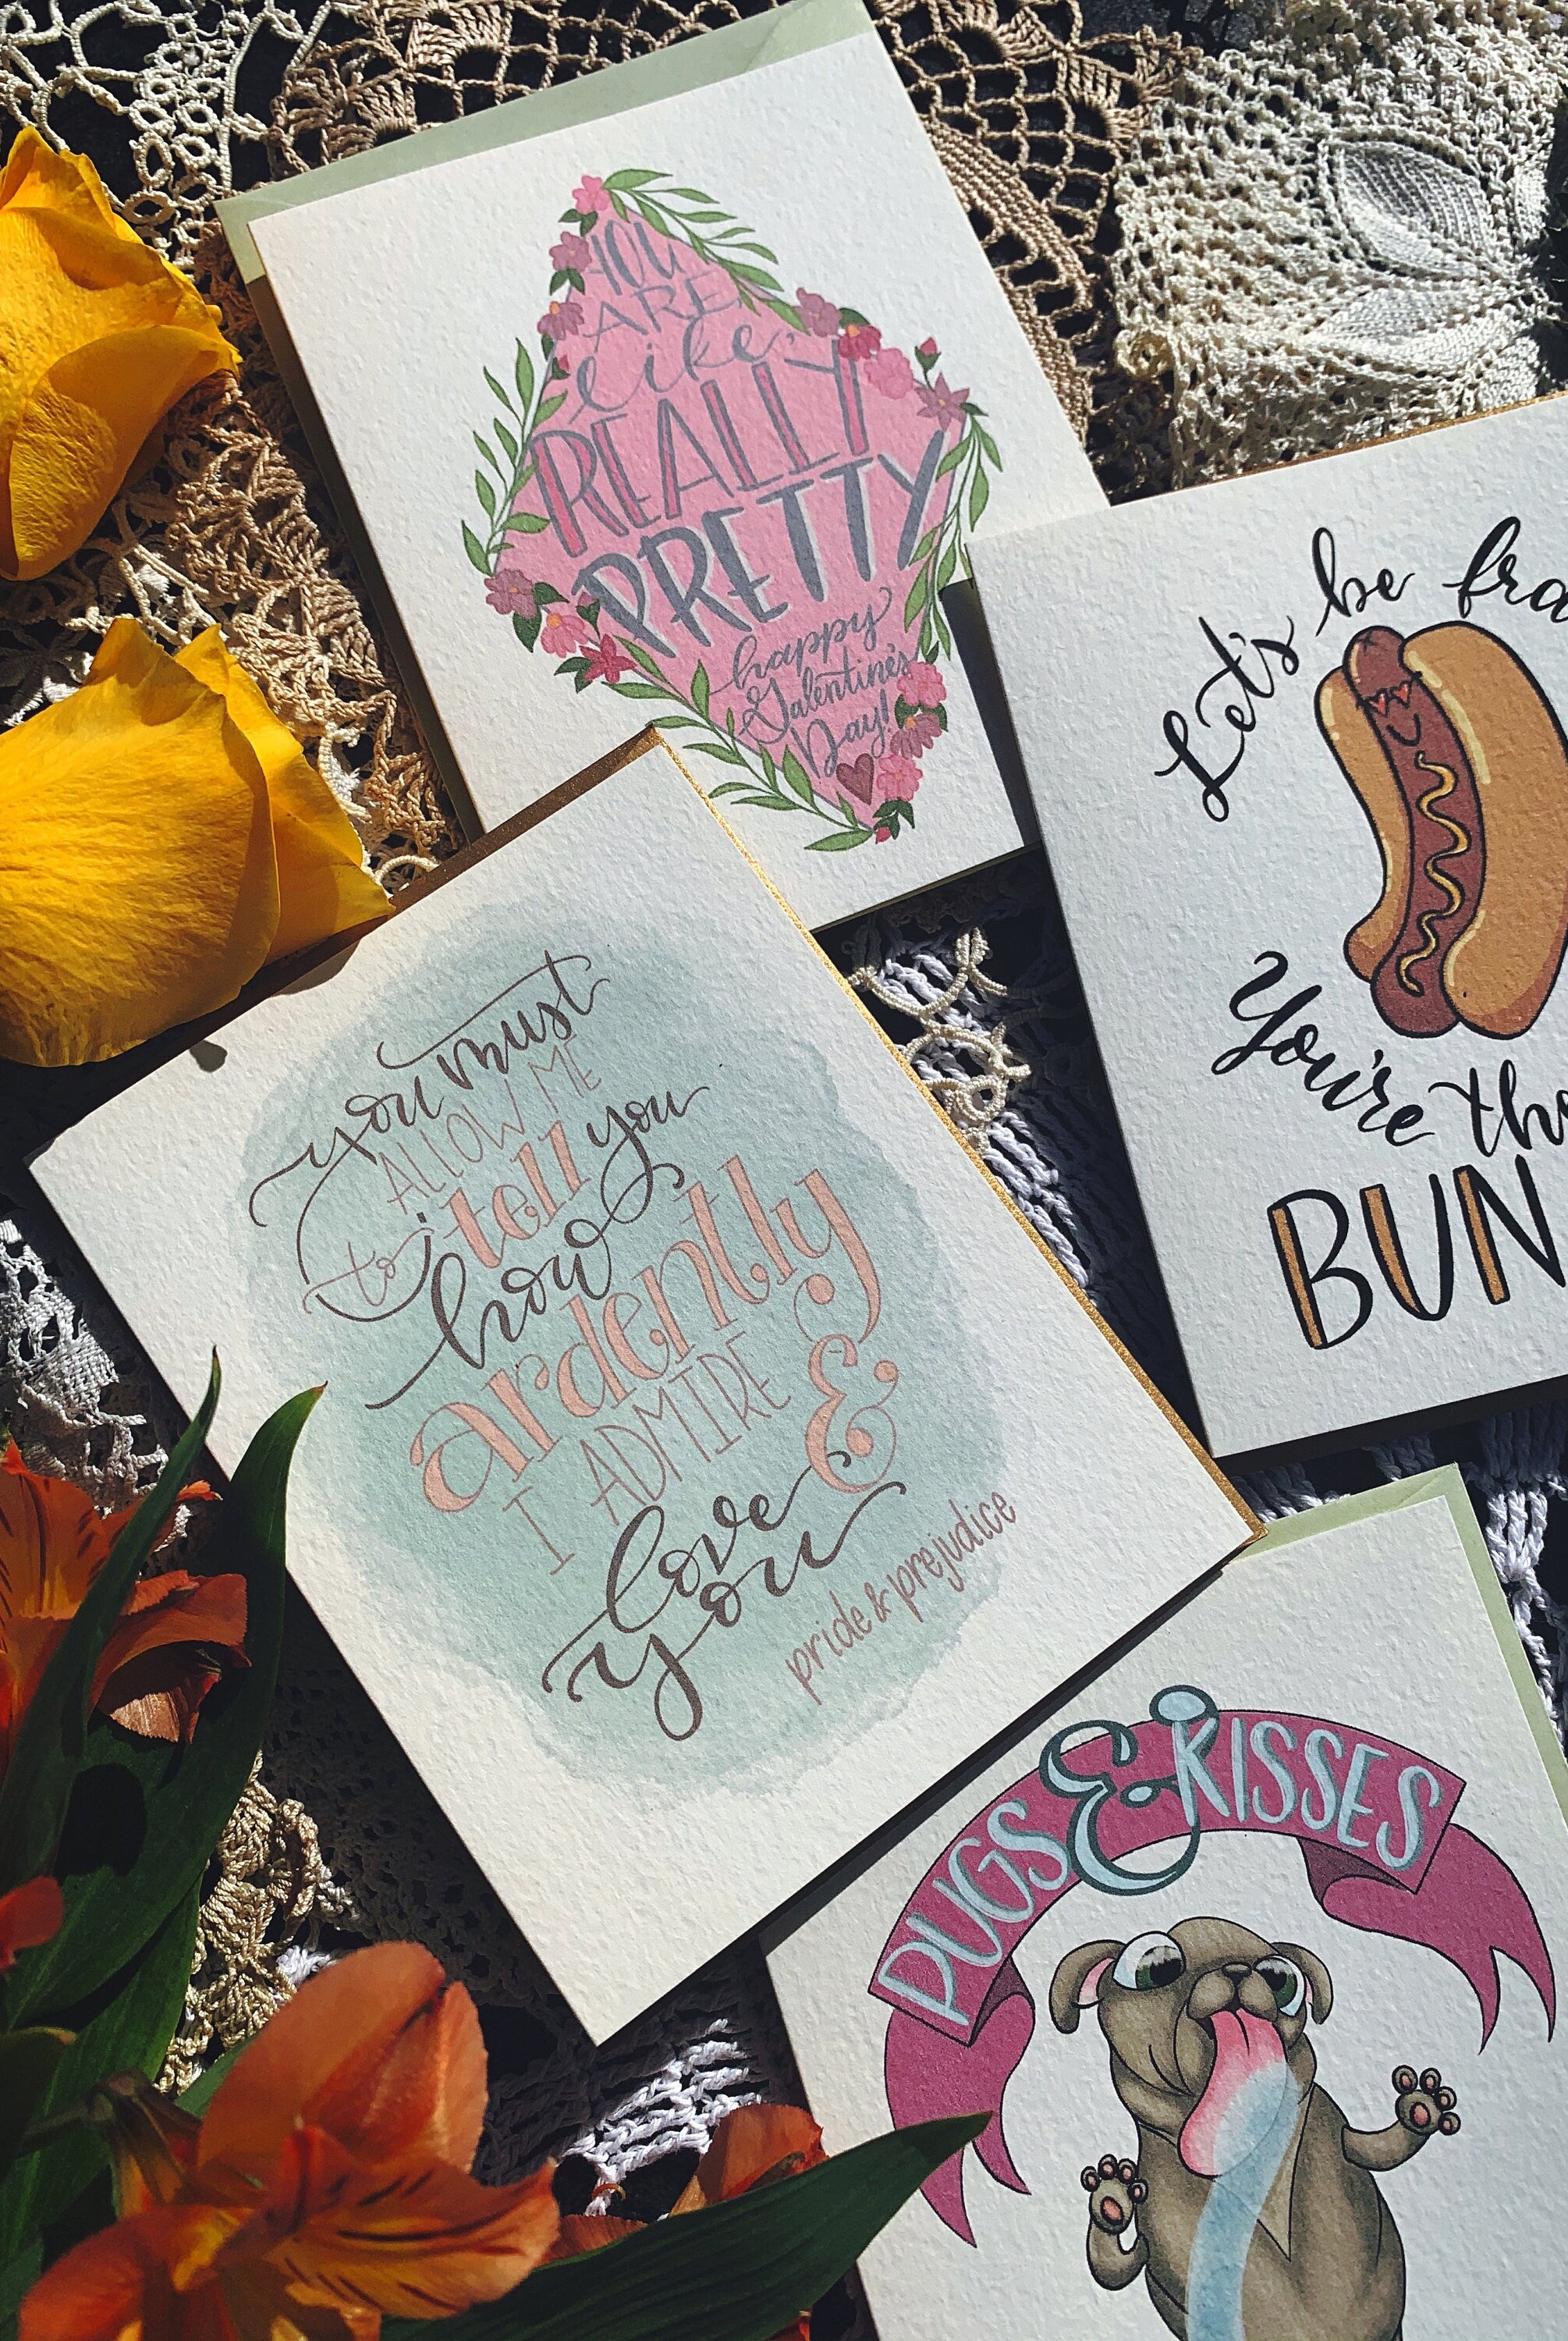 YOU
ARE
like,
REALLY
PRETTY
happy
Valentine's
Day!
Let's be fra
You're the
BUN
you must
ALLOW ME
to tell you
how
ardently
I ADMIRE &
love
you
pride & prejudice
PUGS & KISSES